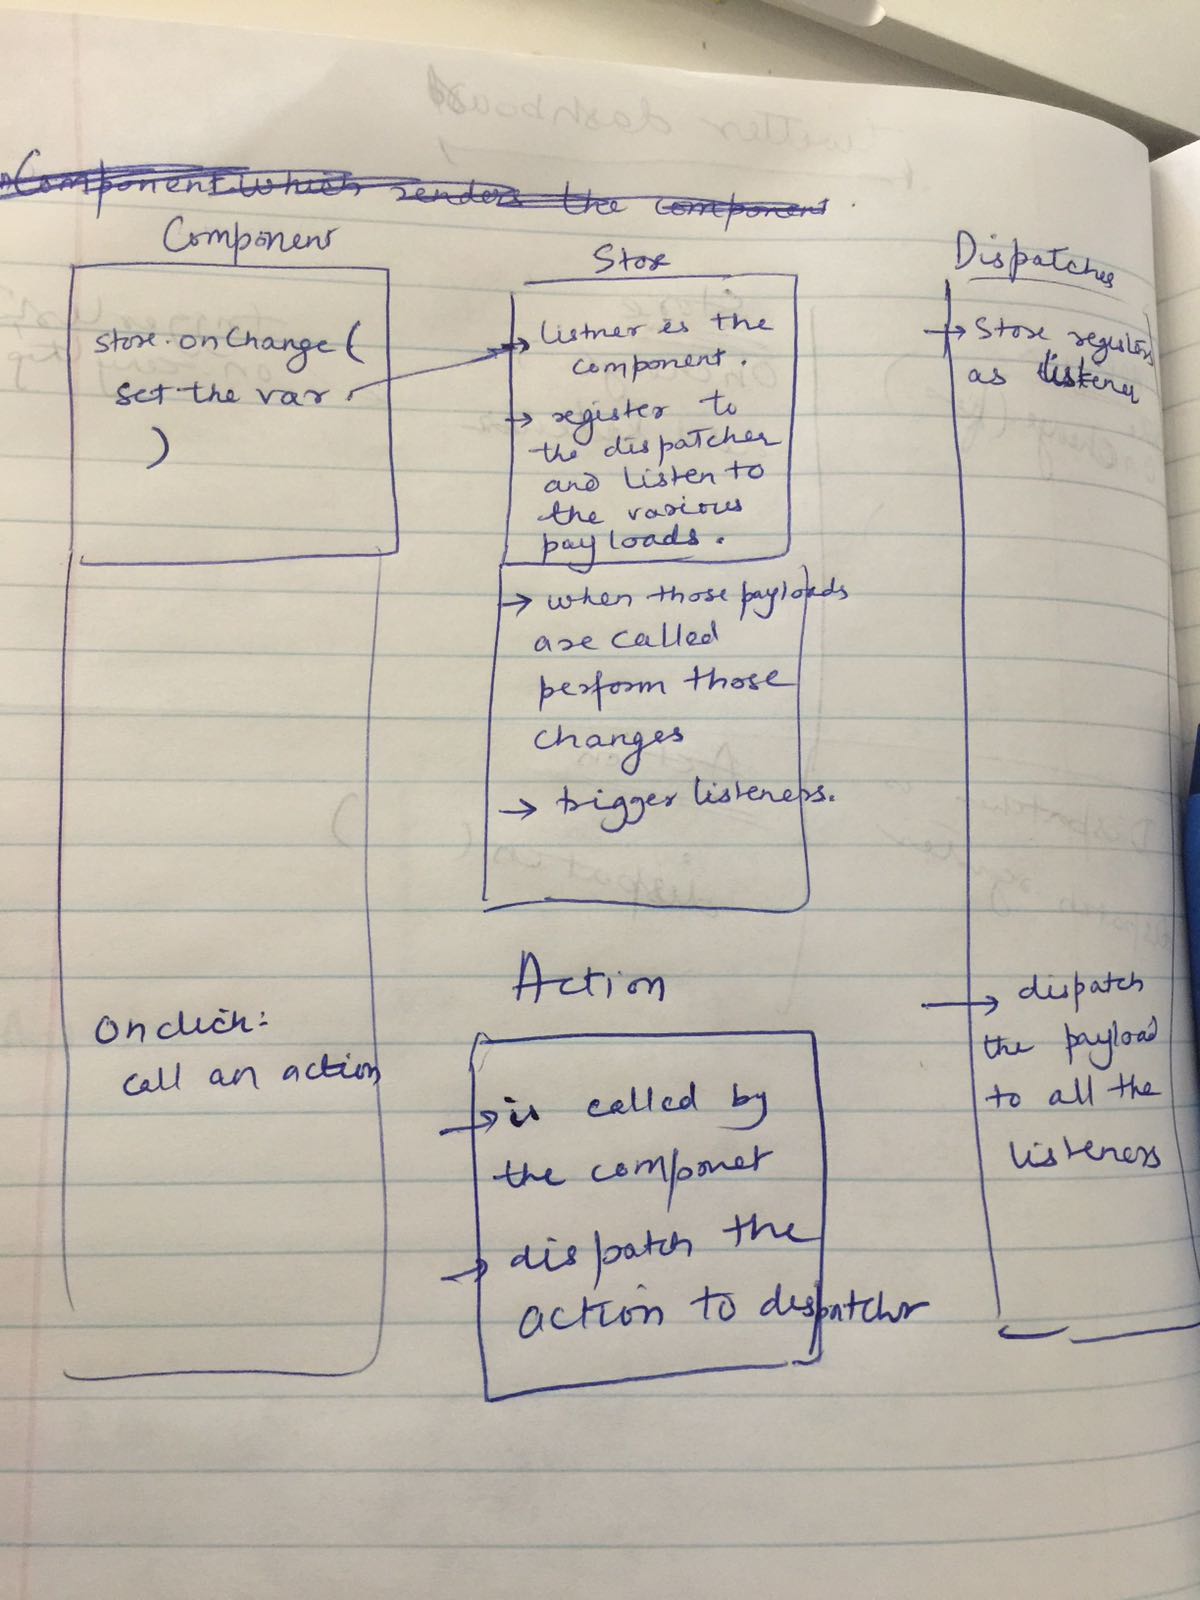 Component which renders the component
Component
store.onChange(
set the var
)
onclick:
call an action
Store
listner is the
component.
register to
the dispatcher
and listen to
the various
payloads.
when those payloads
are called
perform those
changes
trigger listeners.
Action
is called by
the componet
dispatch the
action to dispatchr
Dispatcher
Store registers
as listener
dispatch
the payload
to all the
listeners